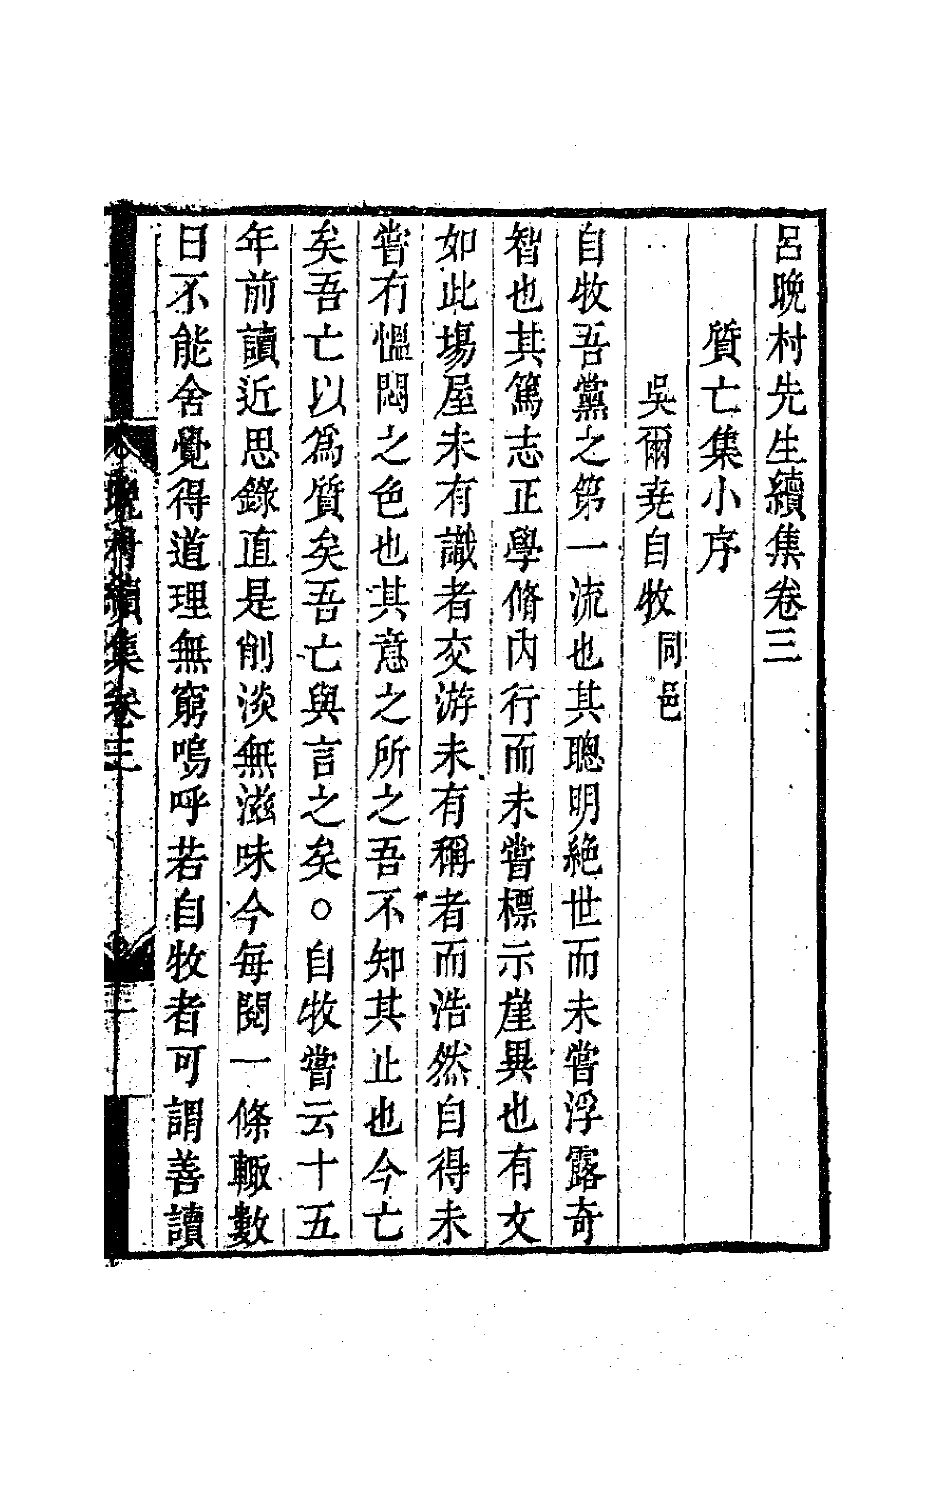 呂晚村先生續集卷三
質亡集小序
吳爾堯自牧同邑
自牧吾黨之第一流也其聰明絶世而未嘗浮露奇
智也其篤志正學脩内行而未嘗標示崖異也有文
如此場屋未有識者交游未有稱者而浩然自得未
嘗有慍悶之色也其意之所之吾不知其止也今亡
矣吾亡以爲質矣吾亡與言之矣○自牧嘗云十五
年前讀近思錄直是削淡無滋味今每閱一條輙數
日不能舍覺得道理無窮嗚呼若自牧者可謂善讀
晚村續集卷三
一